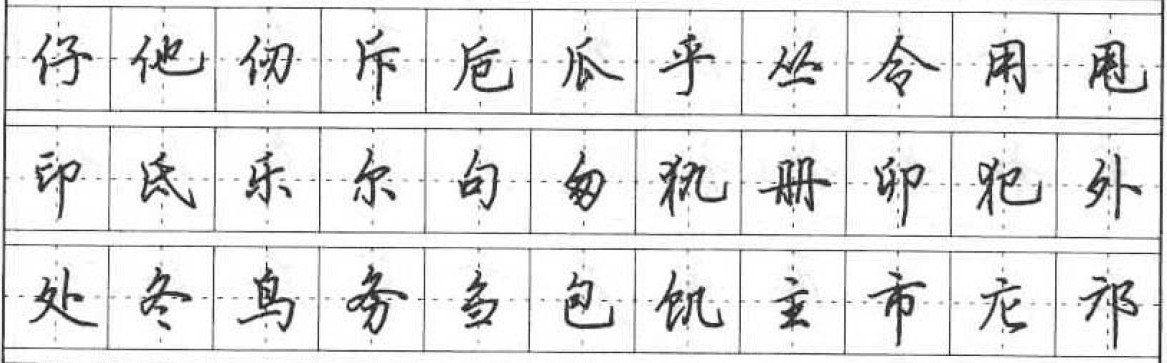 仔他仞斥卮瓜乎丛令用甩
印氐乐尔句匆犰册卯犯外
处冬鸟务刍包饥主市庀邝